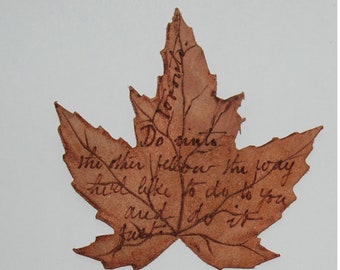 Toronto.
Do unto
the other fellow the way
he'd like to do to you
and do it
fust.